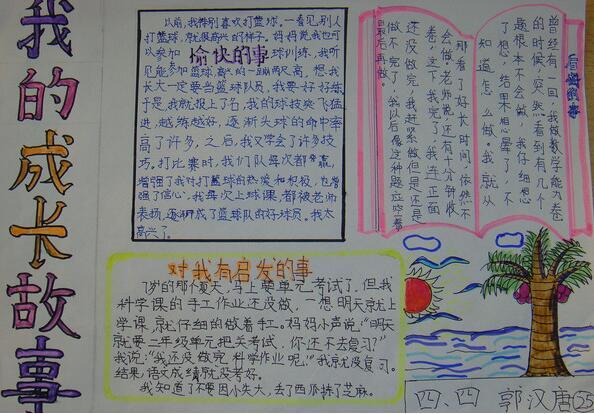 我的成长故事
愉快的事
以前,我特别喜欢打篮球,一看见别人
打篮球,就很高兴的样子。妈妈说我也可
以参加 球训练,我听
见能参加篮球高兴的一蹦两尺高,想,我
长大一定要当篮球队员,我要好好练
于是,我就报上了名,我的球技突飞猛
进,越练越好,逐渐头球的命中率
高了许多,之后,我又学会了许多技
巧,打比赛时,我们队每次都 赢,
增强了我对打篮球的热爱和积极,也增
强了信心,我每次上球课,都被老师
表扬,逐渐成了篮球队的好球员。我太
高兴了。
曾经有一回,我做数学能力卷
的时候,突然看到有几个
题根本不会做,我仔细想
了想,结果想晕了,不
知道怎么做。我就从
那看了好长时间,依然不
会做,老师说还有十分钟收
卷,这下我完了,我连正面
还没做完,我赶紧做但是还是
做不完了,我以后像这种题应空着
最后再做。
对我有启发的事
7岁的那个夏天,马上要单元考试了,但我
科学课的手工作业还没做,一想明天就上
学课,就仔细的做着手工。妈妈小声说:“明天
就要二年级单元把关考试,你还不去复习?”
我说:“我还没做完科学作业呢。”我就没复习。
结果,语文成绩就没考好。
我知道了不要因小失大,丢了西瓜拣了芝麻。
四、四 郭汉唐 25